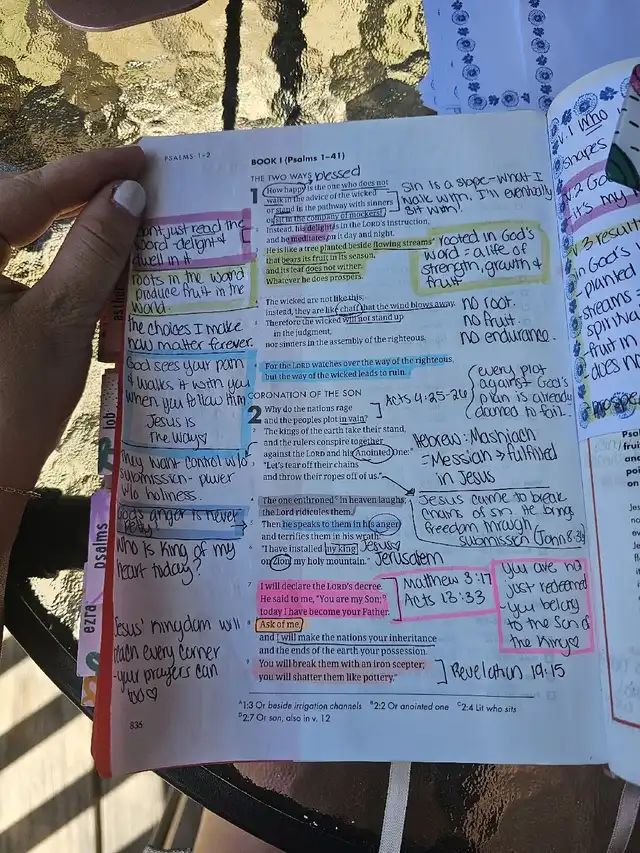 PSALMS 1–2
BOOK I (Psalms 1–41)
THE TWO WAYS
blessed
1 How happy is the one who does not
walk in the advice of the wicked
or stand in the pathway with sinners
or sit in the company of mockers!
Instead, his delight is in the LORD's instruction,
and he meditates on it day and night.
He is like a tree planted beside flowing streams
that bears its fruit in its season,
and its leaf does not wither.
Whatever he does prospers.
The wicked are not like this;
instead, they are like chaff that the wind blows away.
Therefore the wicked will not stand up
in the judgment,
nor sinners in the assembly of the righteous.
For the LORD watches over the way of the righteous,
but the way of the wicked leads to ruin.
CORONATION OF THE SON
2 Why do the nations rage
and the peoples plot in vain?
The kings of the earth take their stand,
and the rulers conspire together
against the LORD and his Anointed One:
"Let's tear off their chains
and throw their ropes off of us."
The one enthroned in heaven laughs;
the Lord ridicules them.
Then he speaks to them in his anger
and terrifies them in his wrath:
"I have installed my king
on Zion, my holy mountain."
Jesus
Jerusalem
7 I will declare the LORD's decree.
He said to me, "You are my Son;
today I have become your Father.
8 Ask of me,
and I will make the nations your inheritance
and the ends of the earth your possession.
9 You will break them with an iron scepter;
you will shatter them like pottery."
A1:3 Or beside irrigation channels B2:2 Or anointed one C2:4 Lit who sits
D2:7 Or son, also in v. 12
836
just read the
word - delight &
dwell in it
roots in the word
produce fruit in the
world.
the choices I make
now matter forever.
God sees your pain
& walks it with you
when you follow him
Jesus is
the way
They want control w/o
submission - power
w/o holiness.
God's anger is never
who is King of my
heart today?
Jesus' Kingdom will
reach every corner
- your prayers can
too ♡
Sin is a slope - what I
walk with, I'll eventually
sit with.
rooted in God's
word = a life of
strength, growth &
fruit
no root.
no fruit.
no endurance.
every plot
against God's
plan is already
doomed to fail.
Acts 4:25-26
Hebrew: Mashiach
= Messiah → fulfilled
in Jesus
Jesus came to break
chains of sin. He brings
freedom through
submission (John 8:36)
Matthew 3:17
Acts 13:33
you are not
just redeemed
- you belong
to the Son of
the King ♡
Revelation 19:15
job
psalms
ezra
v. 1 who
shapes
v. 2 Go
it's my
v. 3 result
in God's
- planted
streams =
spiritual
- fruit in
does no